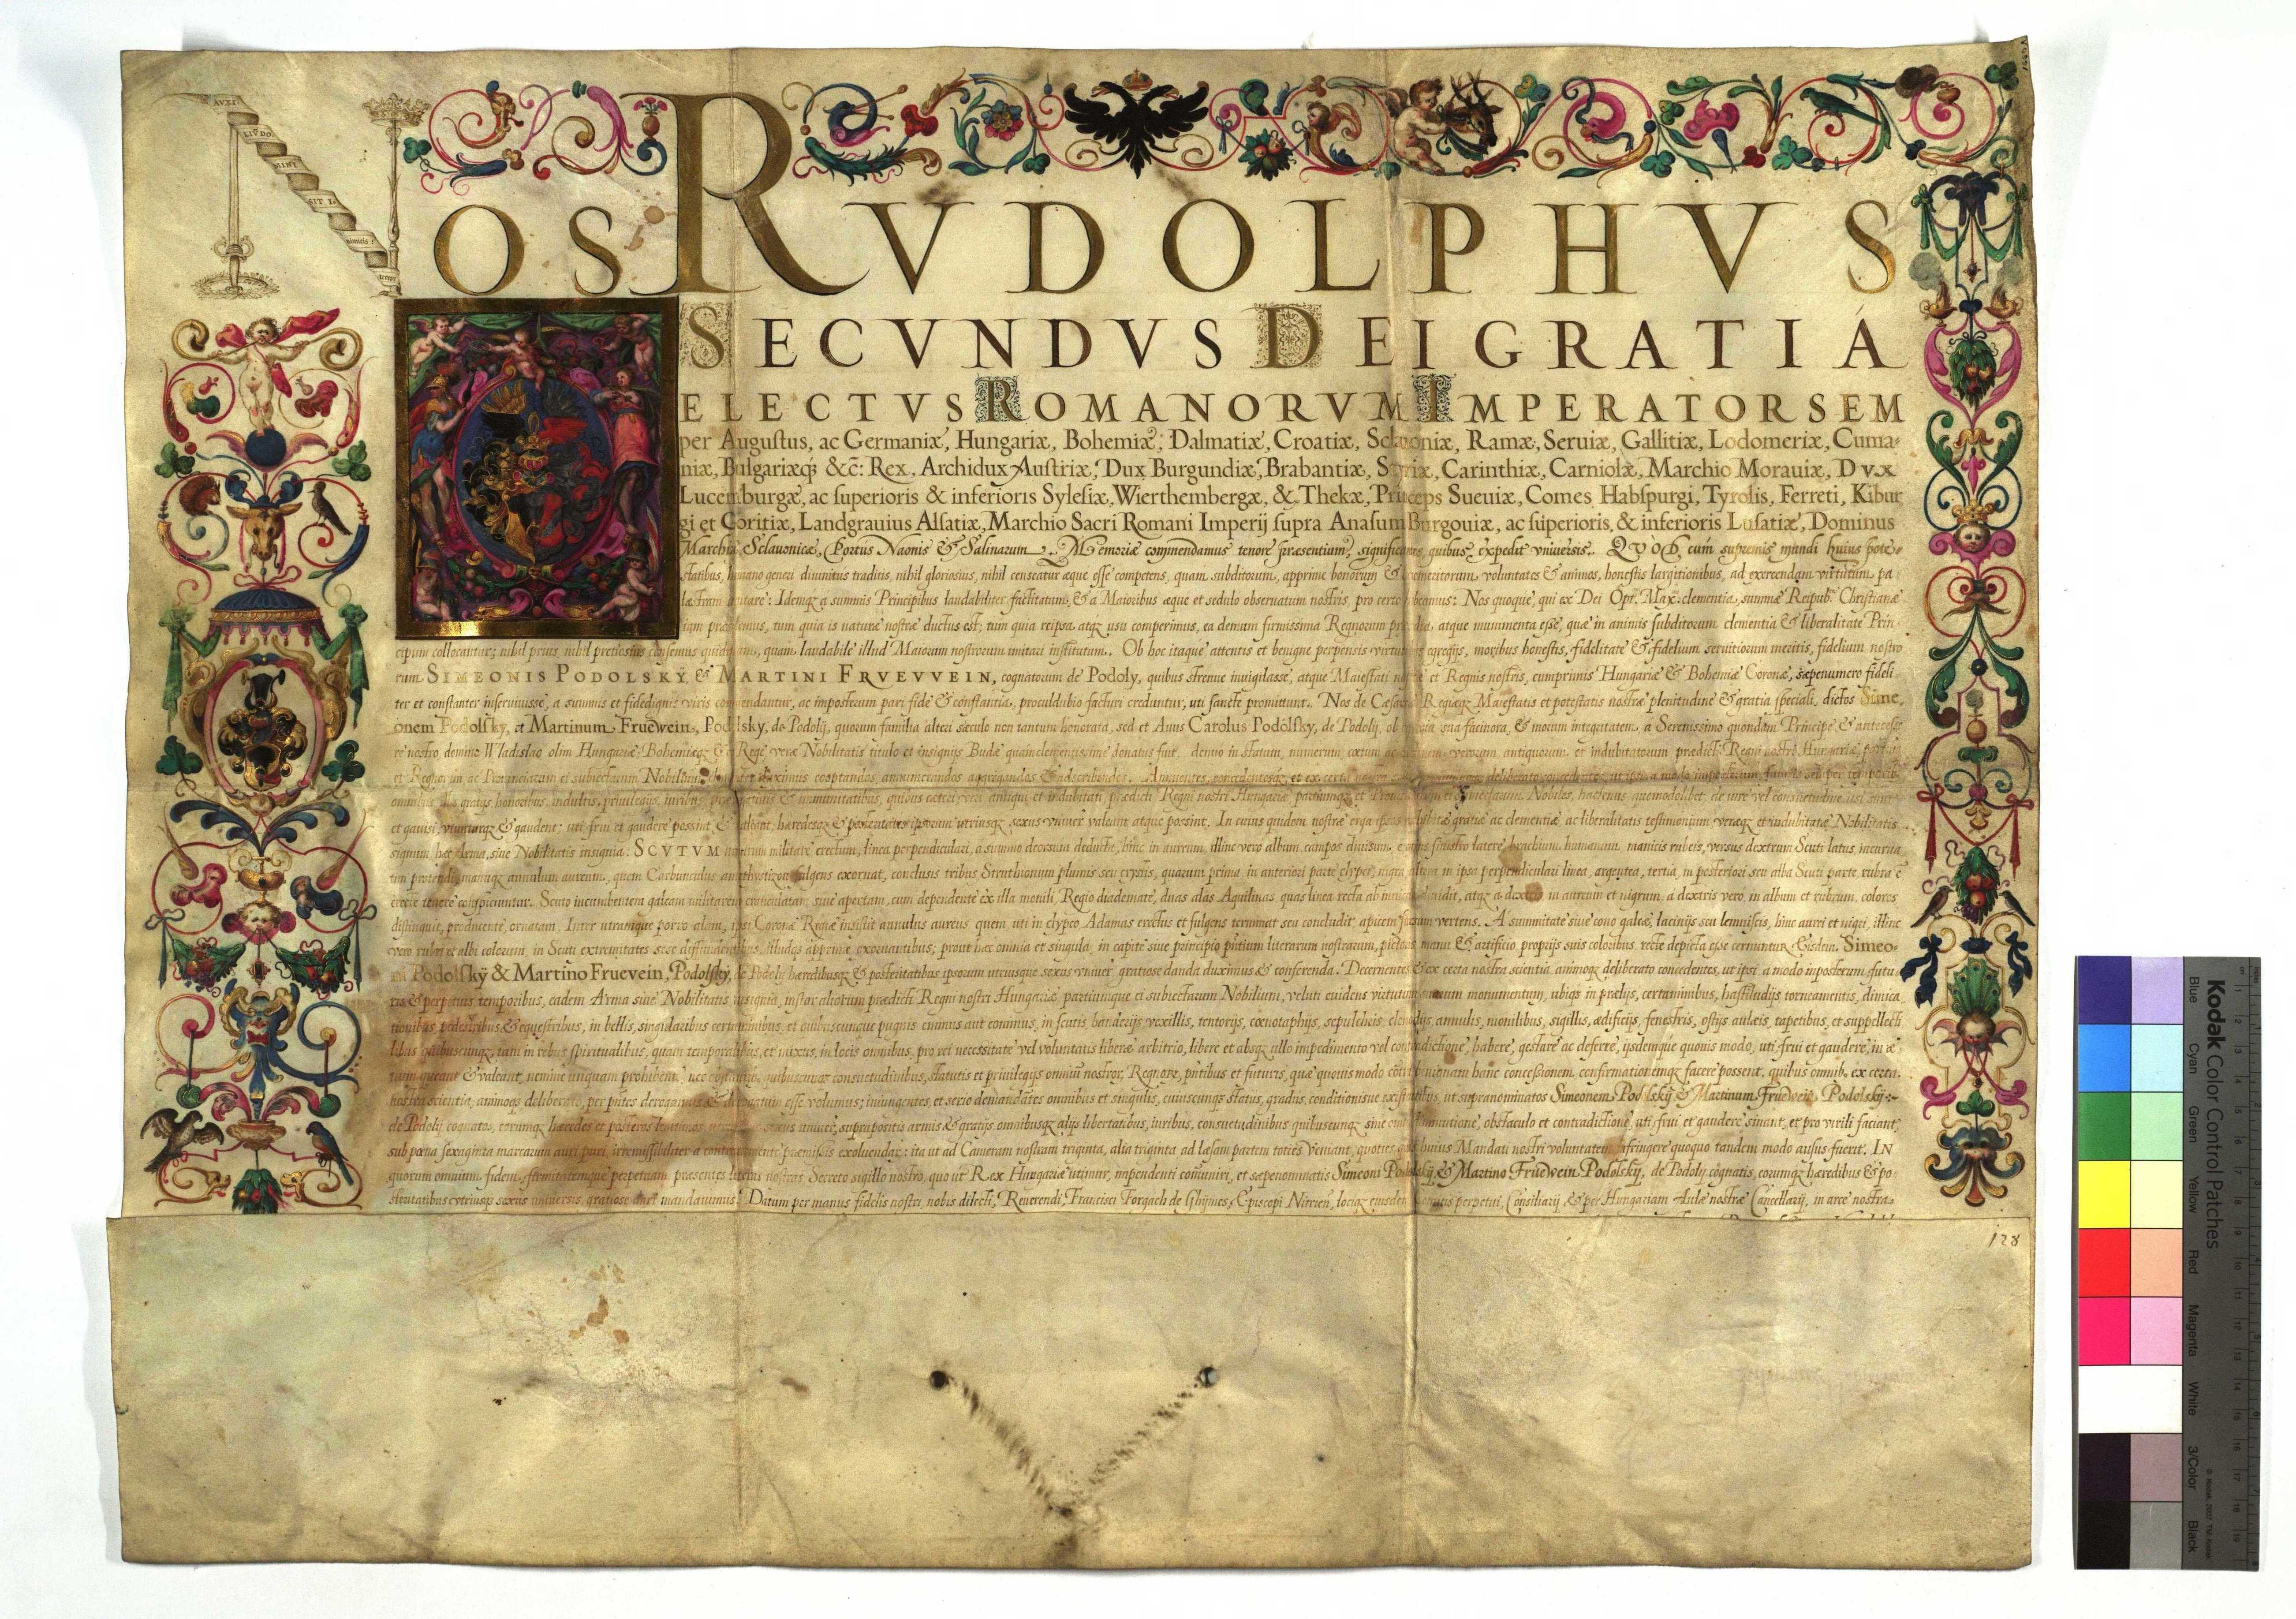 NOS RVDOLPHVS
SECVNDVS DEI GRATIÁ
ELECTVS ROMANORVM IMPERATOR SEM
per Auguſtus, ac Germaniæ, Hungariæ, Bohemiæ, Dalmatiæ, Croatiæ, Sclauoniæ, Ramæ, Seruiæ, Gallitiæ, Lodomeriæ, Cuma-
niæ, Bulgariæq; &c̃: Rex, Archidux Auſtriæ, Dux Burgundiæ, Brabantiæ, Styriæ, Carinthiæ, Carniolæ, Marchio Morauiæ, Dvx
Lucemburgæ, ac ſuperioris & inferioris Syleſiæ, Wierthembergæ, & Thekæ, Princeps Sueuiæ, Comes Habſpurgi, Tyrolis, Ferreti, Kibur
gi et Goritiæ, Landgrauius Alſatiæ, Marchio Sacri Romani Imperij ſupra Anaſum Burgouiæ, ac ſuperioris, & inferioris Luſatiæ, Dominus
Marchiæ Sclauonicæ, Portus Naonis & Salinarum. Memoriæ commendamus tenore præsentium, significantes, quibus expedit vniuersis. QVÒD cùm supremis mundi huius pote-
statibus, humano generi diuinitus traditis, nihil gloriosius, nihil censeatur æque eſſe competens, quam subditorum, apprime bonorum & benemeritorum voluntates & animos, honestis largitionibus, ad exercendam virtutum pa
læstram inuitare: Idemq; a summis Principibus laudabiliter factitatum, & a Maioribus æque et sedulo observatum nostris, pro certo habeamus: Nos quoque, qui ex Dei Opt. Max. clementia, summæ Reipub. Christianæ
tum quia is naturæ nostræ ductus est; tum quia reipsa atq; usu comperimus, ea demum firmissima Regnorum atque munimenta esse, quæ in animis subditorum clementia & liberalitate Prin-
cipum collocantur; nihil prius, nihil pretiosius censemus quam laudabile illud Maiorum nostrorum imitari institutum. Ob hoc itaque attentis et benigne perpensis virtutibus egregijs, moribus honestis, fidelitate & fidelium seruitiorum meritis, fidelium nostro
rum SIMEONIS PODOLSKÝ, & MARTINI FRVEVVEIN, cognatorum de Podoly, quibus strenue inuigilasse, atque Maiestati nostræ et Regnis nostris, cumprimis Hungariæ & Bohemiæ Coronæ, sæpenumero fideli
ter et constanter inseruiuisse, a summis et fidedignis viris commendantur, ac imposterum pari fide & constantia, proculdubio facturi creduntur, uti sancte promittunt. Nos de Cæsarea Regiæq; Maiestatis et potestatis nostræ plenitudine & gratia speciali, dictos Sime,
onem Podolſky, et Martinum Fruewein, Podolsky, de Podolij, quorum familia alteri sæculo non tantum honorata, sed et Auus Carolus Podolſky, de Podolij, ob sua facinora, & morum integritatem, a Serenissimo quondam Principe & antecesso
re nostro domino Wladislao olim Hungariæ, Bohemiæq; & Rege veræ Nobilitatis titulo et insignijs Budæ quam clementissime donatus fuit, denuo in statum, numerum, cœtum ac verorum antiquorum et indubitatorum prædicti Regni nostri Hungariæ partium
et Regnorum ac Prouinciarum ei subiectarum Nobilium duximus cooptandos, annumerandos aggregandos & adscribendos. Annuentes, concedentesq;
omnibus illis gratijs, honoribus, indultis, priuilegijs, iuribus & immunitatibus, quibus cæteri veri antiqui et indubitati prædicti Regni nostri Hungariæ partiumq; Nobiles, hactenus quomodolibet, de iure vel consuetudine usi sunt
et gauisi, utunturq; & gaudent: uti frui et gaudere possint & valeant, hæredesq; & posteritates ipsorum utriusq; sexus vniuer valeant atque possint. In cuius quidem nostræ erga ipsos exhibitæ gratiæ ac clementiæ ac liberalitatis testimonium, veræq; et indubitatæ Nobilitatis
signum, hæc Arma, siue Nobilitatis insignia. SCVTVM militare erectum, linea perpendiculari, a summo deorsum deducta, hinc in aureum, illinc vero album, campos diuisum, sinistro latere brachium humanum manicis rubeis, versus dextrum Scuti latus, incurua
tim protendi, manuq; annulum aureum, quem Carbunculus fulgens exornat, conclusis tribus Struthionum plumis seu cristis, quarum prima, in anteriori parte clypei, nigra, altera in ipsa perpendiculari linea, argentea, tertia, in posteriori seu alba Scuti parte, rubra
erecte tenere conspiciuntur. Scuto incumbentem galeam militarem siue apertam, cum dependente ex illa monili, Regio diademate, duas alas Aquilinas quas linea recta atq; a dextris in aureum et nigrum, a dextris vero, in album et rubrum, colores
distinguit, producente, ornatam. Inter utramque porro alam, ipsi Coronæ Regiæ insistit annulus aureus quem, uti in clypeo, Adamas erectus et fulgens terminat seu concludit, apicem sursum vertens. A summitate siue cono galeæ, lacinijs seu lemniscis, hinc aurei et nigri, illinc
vero rubri et albi colorum, in Scuti extremitates sese diffundentibus, illudq; apprime exornantibus; prout hæc omnia et singula, in capite siue principio litterarum nostrarum, pictoris manu & artificio proprijs suis coloribus, recte depicta esse cernuntur. Eisdem Simeo-
ni Podolſkÿ & Martino Fruevein, Podolſkÿ, de Podolij hæredibusq; & posteritatibus ipsorum utriusque sexus vniuer gratiose danda duximus & conferenda. Decernentes & ex certa nostra scientia animoq; deliberato concedentes, ut ipsi a modo imposterum futu
ris & perpetuis temporibus, eadem Arma siue Nobilitatis insignia, instar aliorum prædicti Regni nostri Hungariæ partiumque ei subiectarum Nobilium, veluti euidens virtutum suarum monumentum, ubiq; in prælijs, certaminibus, hastiludijs, torneamentis, dimica
tionibus, pedestribus & equestribus, in bellis, singularibus certaminibus, et quibuscunque pugnis cominus aut eminus, in scutis, banderijs vexillis, tentorijs, cœnotaphijs, sepulchris, clenodijs, annulis, monilibus, sigillis, ædificijs, fenestris, ostijs, aulæis, tapetibus, et suppellecti
libus quibuscunq;, tam in rebus spiritualibus, quam temporalibus, et mixtis, in locis omnibus, pro rei necessitate vel voluntatis liberæ arbitrio, libere et absq; ullo impedimento vel contradictione, habere, gestare ac deferre, ijsdemque quouis modo, uti frui et gaudere, in æ
uum queant & valeant, nemine unquam prohibente, nec obstantibus quibuscunq; consuetudinibus, statutis et priuilegijs omniũ nostror. Regnor. quæ quouis modo hanc concessionem, confirmationemq; facere possent, quibus omnib. ex certa
nostra scientia, animoq; deliberato, derogamus & derogatum esse volumus; iniungentes, et serio demandantes omnibus et singulis, cuiuscunq; status, gradus, conditionisue existentibus, ut supranominatos Simeonem Podolskij & Martinum Fruewein, Podolskij
de Podolij cognatos, eorumq; hæredes et posteros sexus vniuer, suprapositis armis & gratijs omnibusq; alijs libertatibus, iuribus, consuetudinibus quibuscunq; sine omni obstaculo et contradictione, uti frui et gaudere sinant, et pro virili faciant,
sub pœna sexaginta marcarum auri puri, irremissibiliter a præmissis exoluendar: ita ut ad Cameram nostram triginta, alia triginta ad læsam partem toties veniant, quoties quis huius Mandati nostri voluntatem infringere quoquo tandem modo ausus fuerit. IN
quorum omnium fidem, firmitatemque perpetuam, præsentes literas nostras Secreto sigillo nostro, quo ut Rex Hungariæ utimur, impendenti comuniri, et sæpenominatis Simeoni Podolskij & Martino Fruewein Podolskij, de Podoly cognatis, eorumq; hæredibus & po
steritatibus utriusq; sexus vniuersis, gratiose dare mandauimus. Datum per manus fidelis nostri, nobis dilecti, Reuerendi, Francisci Forgach de Ghymes, Episcopi Nitrien, lociq; eiusdem Comitis perpetui, Consiliarij & per Hungariam Aulæ nostræ Cancellarij, in arce nostra
128
Kodak Color Control Patches
Blue Cyan Green Yellow Red Magenta White 3/Color Black